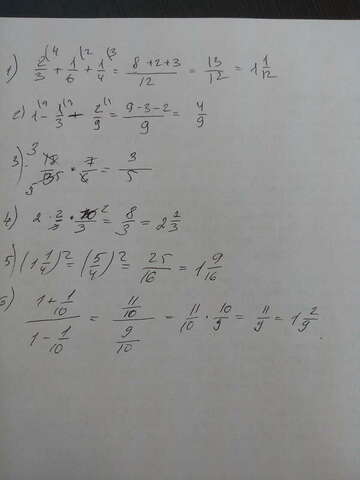 1) 2/3 (4 + 1/6 (2 + 1/4 (3 = 8+2+3/12 = 13/12 = 1 1/12
2) 1 (9 - 1/3 (3 - 2/9 (1 = 9-3-2/9 = 4/9
3) 18/35 · 7/6 = 3/5
4) 2 · 2/5 · 10/3 = 8/3 = 2 2/3
5) (1 1/4)² = (5/4)² = 25/16 = 1 9/16
6) 1+1/10 / 1-1/10 = 11/10 / 9/10 = 11/10 · 10/9 = 11/9 = 1 2/9